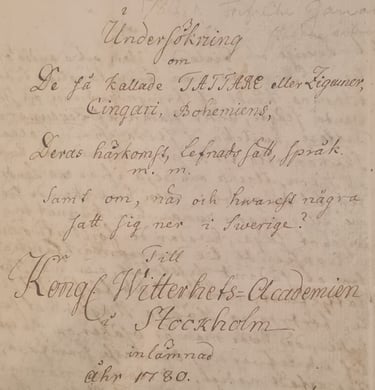 Undersökning
om
De så kallade TATTARE eller Zigeuner,
Cingari, Bohemiens,
Deras härkomst, lefnadssätt, språk.
m. m.
Samt om, når och hwarest några
satt sig ner i Swerige?
Till
Kongl Witterhets-Academien
i Stockholm
inlämnad
åhr 1780.